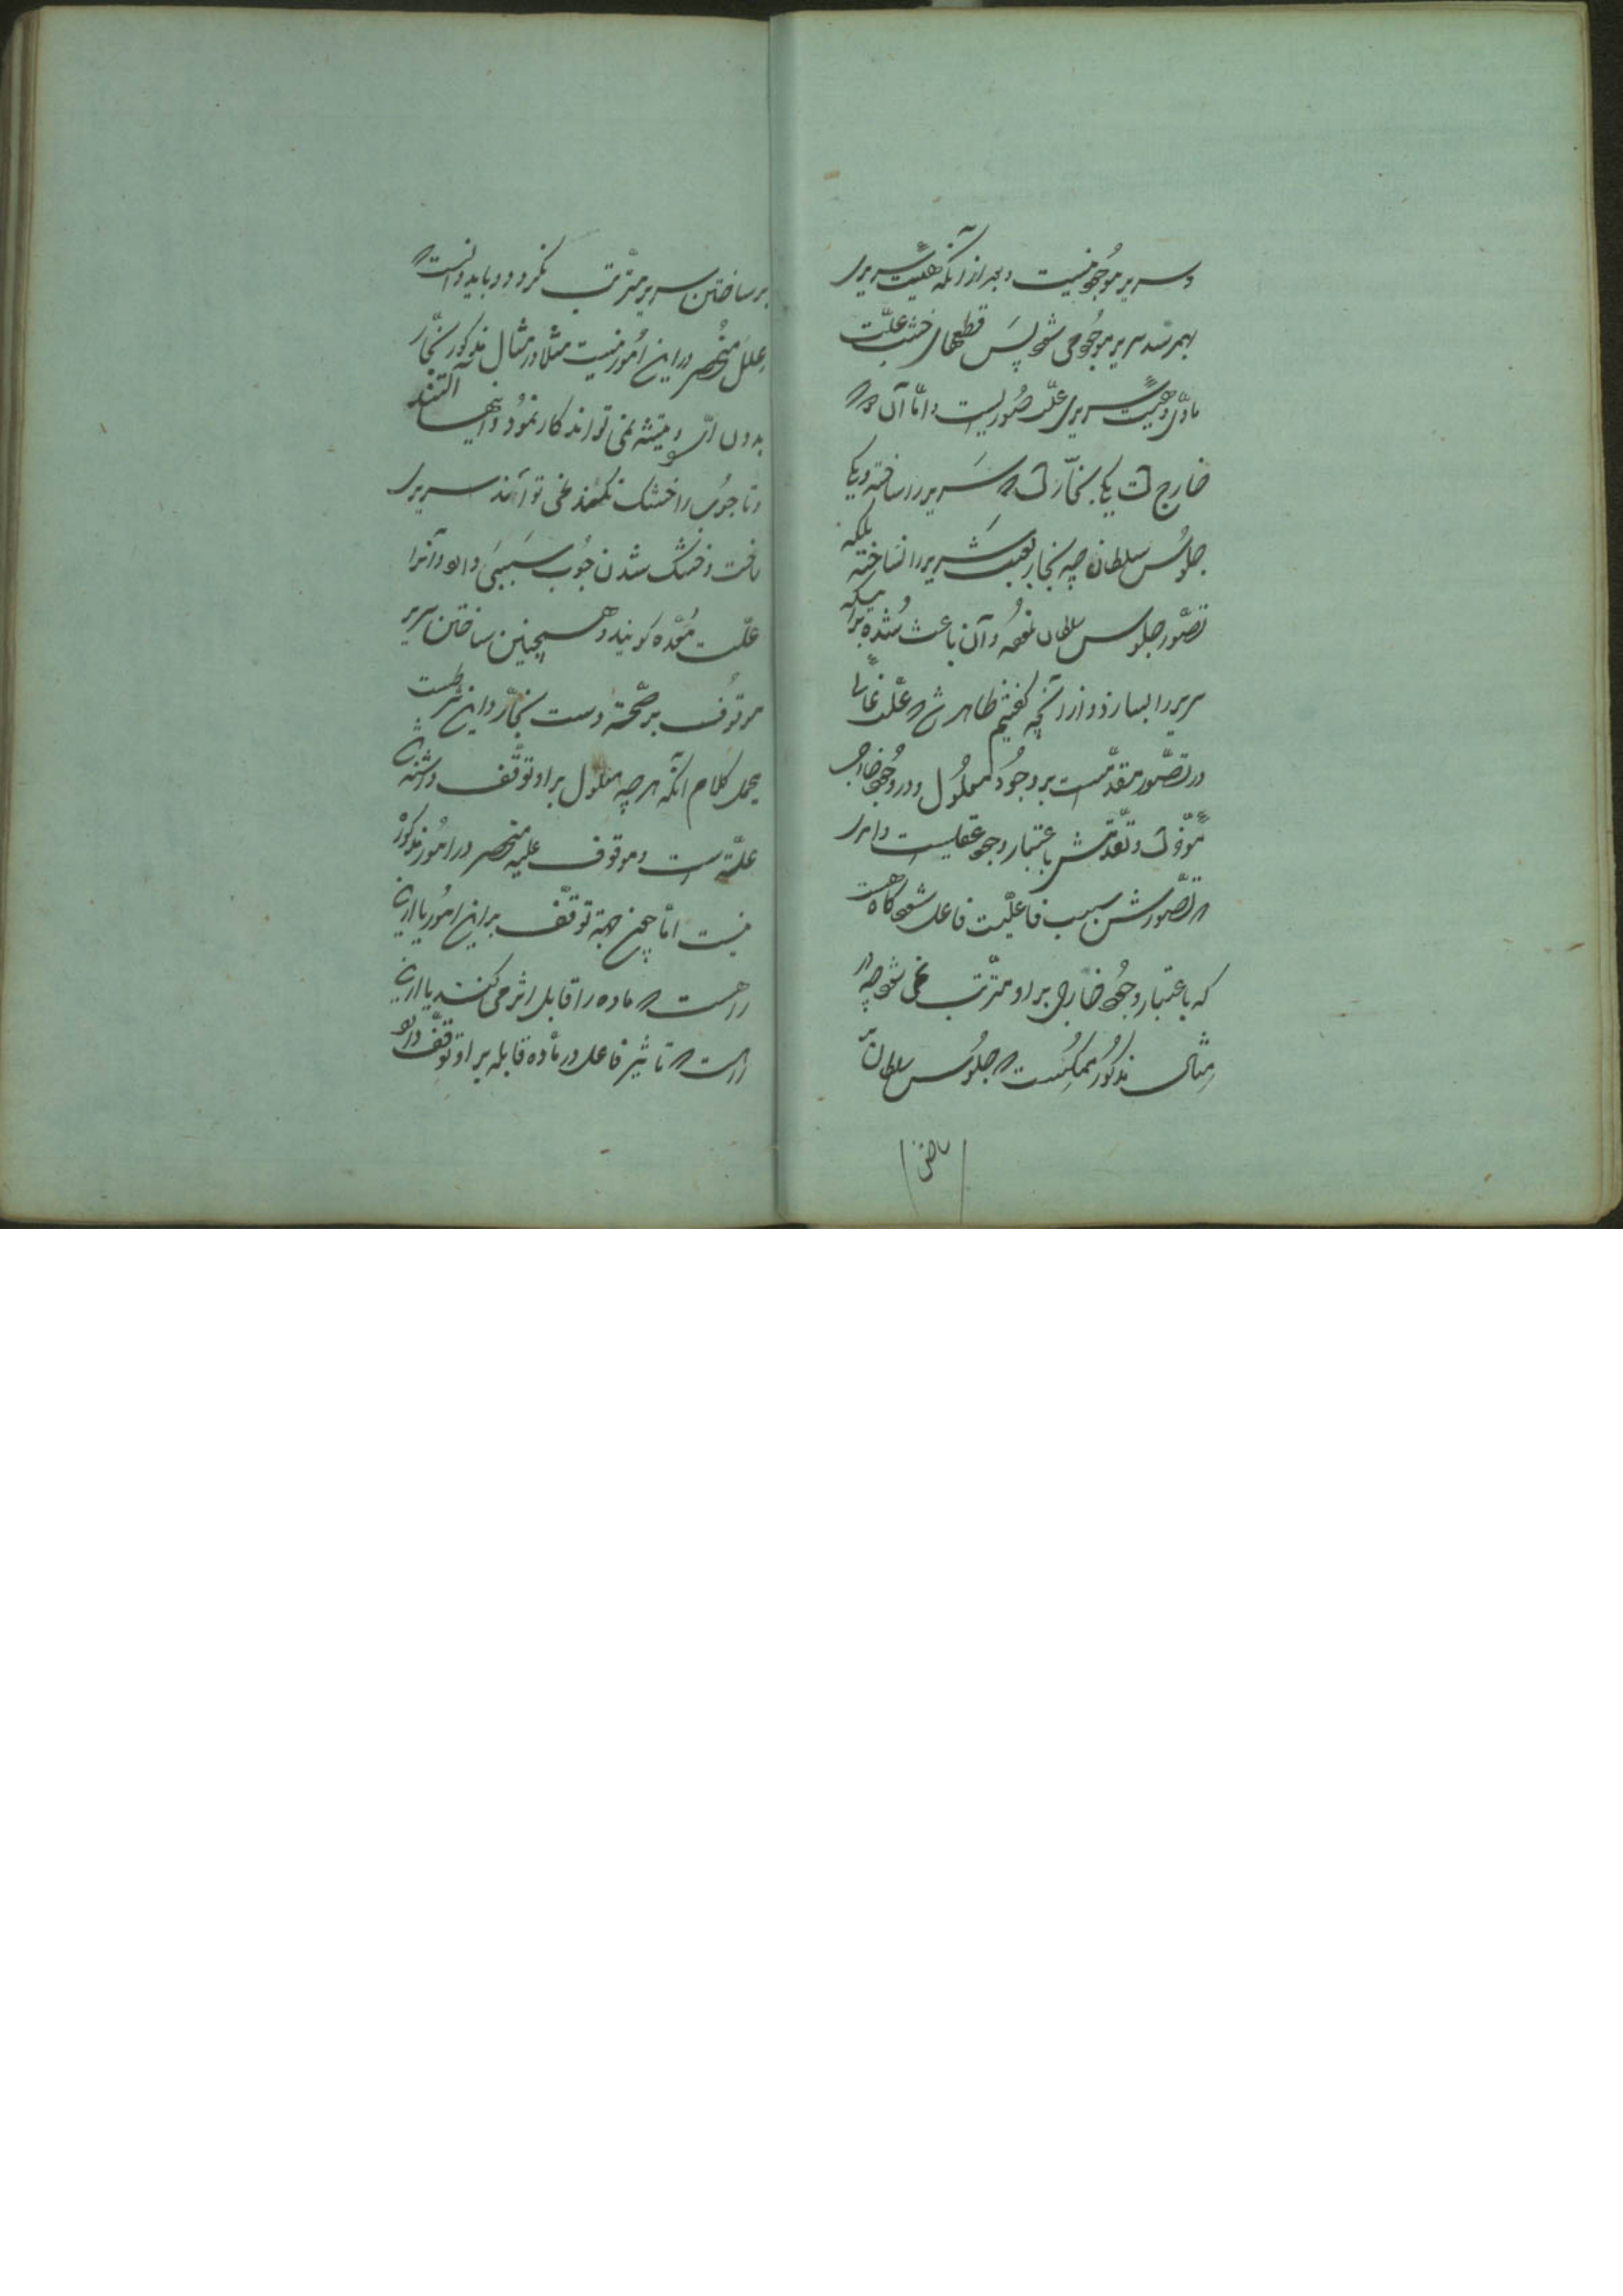 و سریر موجود نیست و بعد از آنکه هیئت سریری
بهمرسد سریر موجود می شود پس قطعهای خشب علّت
مادّی و هیئت سریری علّت صوریست و امّا آن دو که
خارجست یکی نجّارست که سریر را ساخته و یکی
جلوس سلطان چه نجار بعبث سریر را نساخته بلکه
تصوّر جلوس سلطان نموده و آن باعث شده برانکه
سریر را بسازد و از آنچه گفتیم ظاهر شد که علّت غائی
در تصوّر مقدّمست بر وجود معلول و در وجود خارجی
مؤخّرست و تقدّمش باعتبار وجود عقلیست و امری
که تصوّرش سبب فاعلیّت فاعل شود گاه هست
که باعتبار وجود خارجی بر او مترتّب نمی شود چه در
مثال مذکور ممکنست که جلوس سلطان
بر ساختن
بر ساختن سریر مترتّب نگردد و باید دانست که
علل منحصر در این امور نیست مثلا در مثال مذکور نجّار
بدون ارّه و تیشه نمی تواند کار نمود و اینها آلتند
و تا چوب را خشک نکنند نمی توانند سریری
ساخت و خشک شدن چوب سببی دارد و آنرا
علّت معدّه گویند و همچنین ساختن سریر
موقوف بر صحّة دست نجّار و این شرطست
مجمل کلام آنکه هر چه معلول بر او توقّف داشته باشد
علّتست و موقوف علیه منحصر در امور مذکور
نیست امّا جمیع جهة توقّف بر این امور یا ازین
راهست که ماده را قابل اثر می کنند یا ازین
راهست که تاثیر فاعل در مادّه قابله بر او توقّف دارد